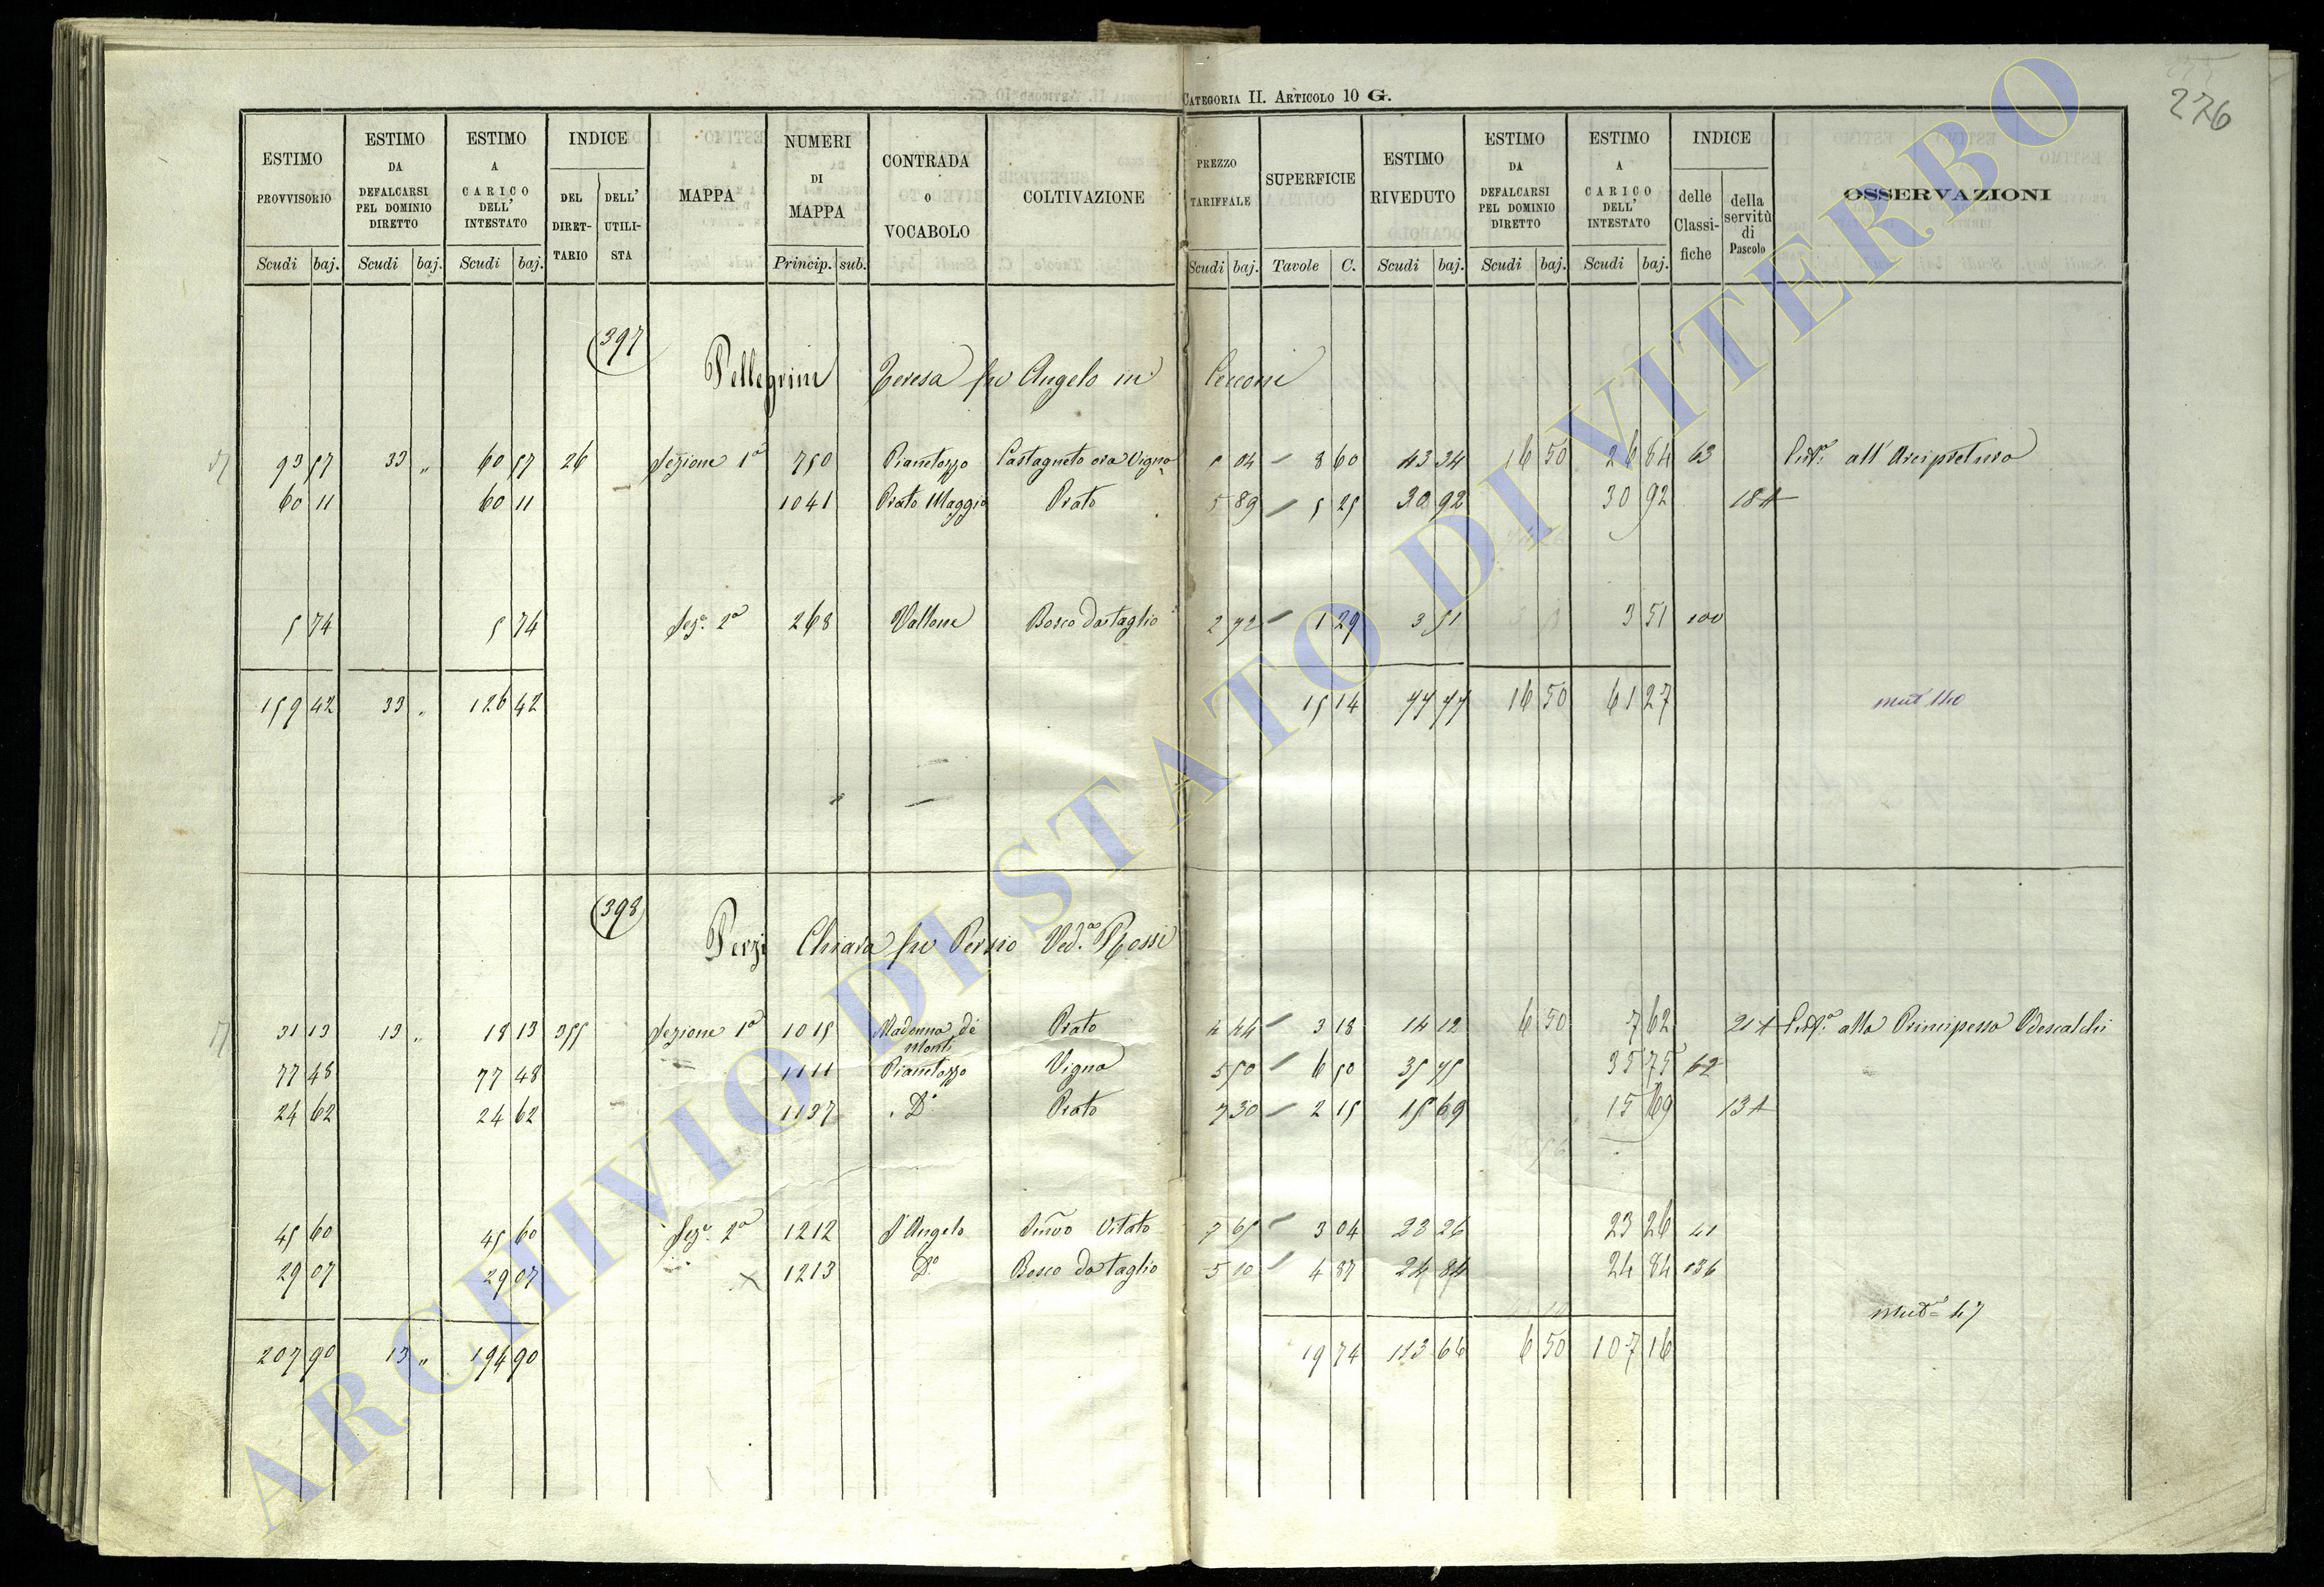 CATEGORIA II. ARTICOLO 10 G.
276
ESTIMO PROVVISORIO Scudi baj.
ESTIMO DA DEFALCARSI PEL DOMINIO DIRETTO Scudi baj.
ESTIMO A CARICO DELL' INTESTATO Scudi baj.
INDICE DEL DIRETTARIO DELL' UTILISTA
MAPPA
NUMERI DI MAPPA Princip. sub.
CONTRADA O VOCABOLO
COLTIVAZIONE
PREZZO TARIFFALE Scudi baj.
SUPERFICIE Tavole C.
ESTIMO RIVEDUTO Scudi baj.
ESTIMO DA DEFALCARSI PEL DOMINIO DIRETTO Scudi baj.
ESTIMO A CARICO DELL' INTESTATO Scudi baj.
INDICE delle Classifiche della servitù di Pascolo
OSSERVAZIONI
397
Pellegrini Teresa fu Angelo in Cecconi
93 57 33 „ 60 57 26 Sezione 1ª 750 Pianetozzo Castagneto ora Vigna 5 04 8 60 43 34 16 50 26 84 63 all' Arcipretura
60 11 60 11 1041 Prato Maggio Prato 5 89 5 25 30 92 30 92 18 A
5 74 5 74 Sezª 2ª 268 Vallone Bosco da taglio 2 72 1 29 3 51 3 51 100
159 42 33 „ 126 42 15 14 77 77 16 50 61 27 mutª 140
398
Perzi Chiara fu Persio Vedª Rossi
31 13 13 „ 18 13 355 Sezione 1ª 1015 Madonna de Monti Prato 4 44 3 18 14 12 6 50 7 62 21 A alla Principessa Odescalchi
77 48 77 48 1111 Pianetozzo Vigna 5 50 6 50 35 75 35 75 62
24 62 24 62 1137 Dº Prato 7 30 2 15 15 69 15 69 13 A
45 60 45 60 Sezª 2ª 1212 S Angelo Semvo Vitato 7 65 3 04 23 26 23 26 41
29 07 29 07 × 1213 Dº Bosco da taglio 5 10 4 87 24 84 24 84 136
mutª 47
207 90 13 „ 194 90 19 74 113 66 6 50 107 16
ARCHIVIO DI STATO DI VITERBO